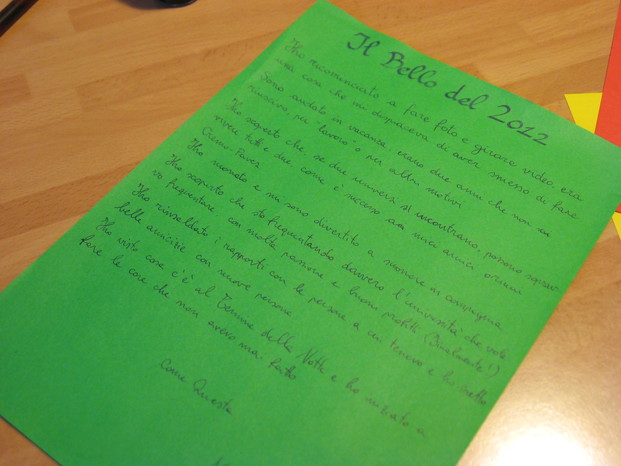 Il Bello del 2012
Ho ricominciato a fare foto e girare video, era
una cosa che mi dispiaceva di aver smesso di fare
Sono andata in vacanza, erano due anni che non ci
riuscivo, per "lavoro" o per altri motivi
Ho scoperto che, se due universi si incontrano, possono soprav-
vivere tutti e due come è successo con miei amici
Ho suonato e mi sono divertito a suonare in compagnia
Ho scoperto che sto frequentando davvero l'università che vole
vo frequentare con molta passione e buoni profitti (finalmente!)
Ho rinsaldato i rapporti con le persone a cui tenevo e ho stretto
belle amicizie con nuove persone
Ho visto cosa c'è al Termine della Notte e ho iniziato a
fare le cose che non avevo mai fatto
Come Questa